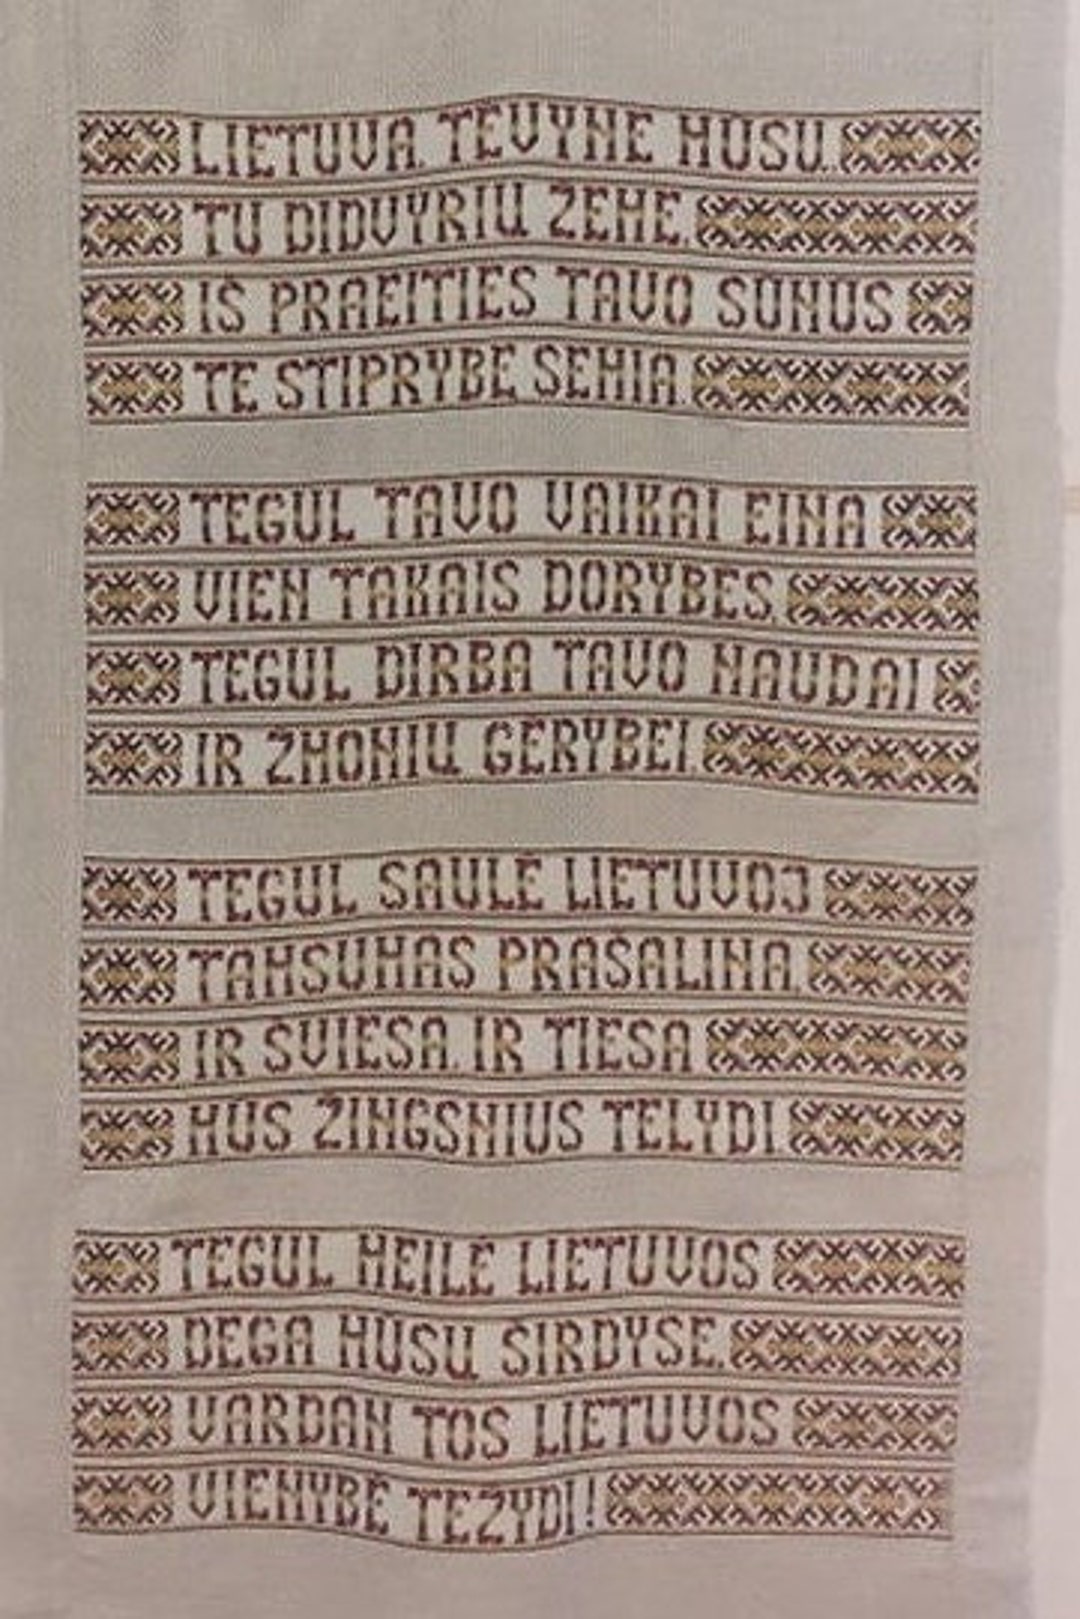 LIETUVA, TĖVYNE MŪSŲ,
TU DIDVYRIŲ ŽEME,
IŠ PRAEITIES TAVO SŪNŪS
TE STIPRYBĘ SEMIA.
TEGUL TAVO VAIKAI EINA
VIEN TAKAIS DORYBĖS,
TEGUL DIRBA TAVO NAUDAI
IR ŽMONIŲ GĖRYBEI.
TEGUL SAULĖ LIETUVOJ
TAMSUMAS PRAŠALINA,
IR ŠVIESA, IR TIESA
MŪS ŽINGSNIUS TELYDI.
TEGUL MEILĖ LIETUVOS
DEGA MŪSŲ ŠIRDYSE,
VARDAN TOS LIETUVOS
VIENYBĖ TEŽYDI!